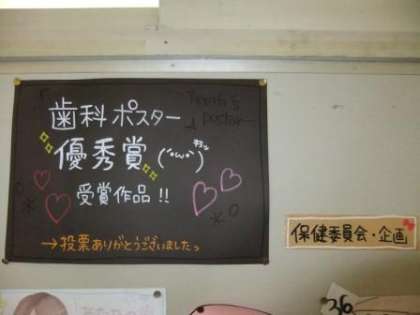 歯科ポスター
優秀賞
(´•ω•`)
受賞作品!!
→投票ありがとうございましたっ
保健委員会・企画
36